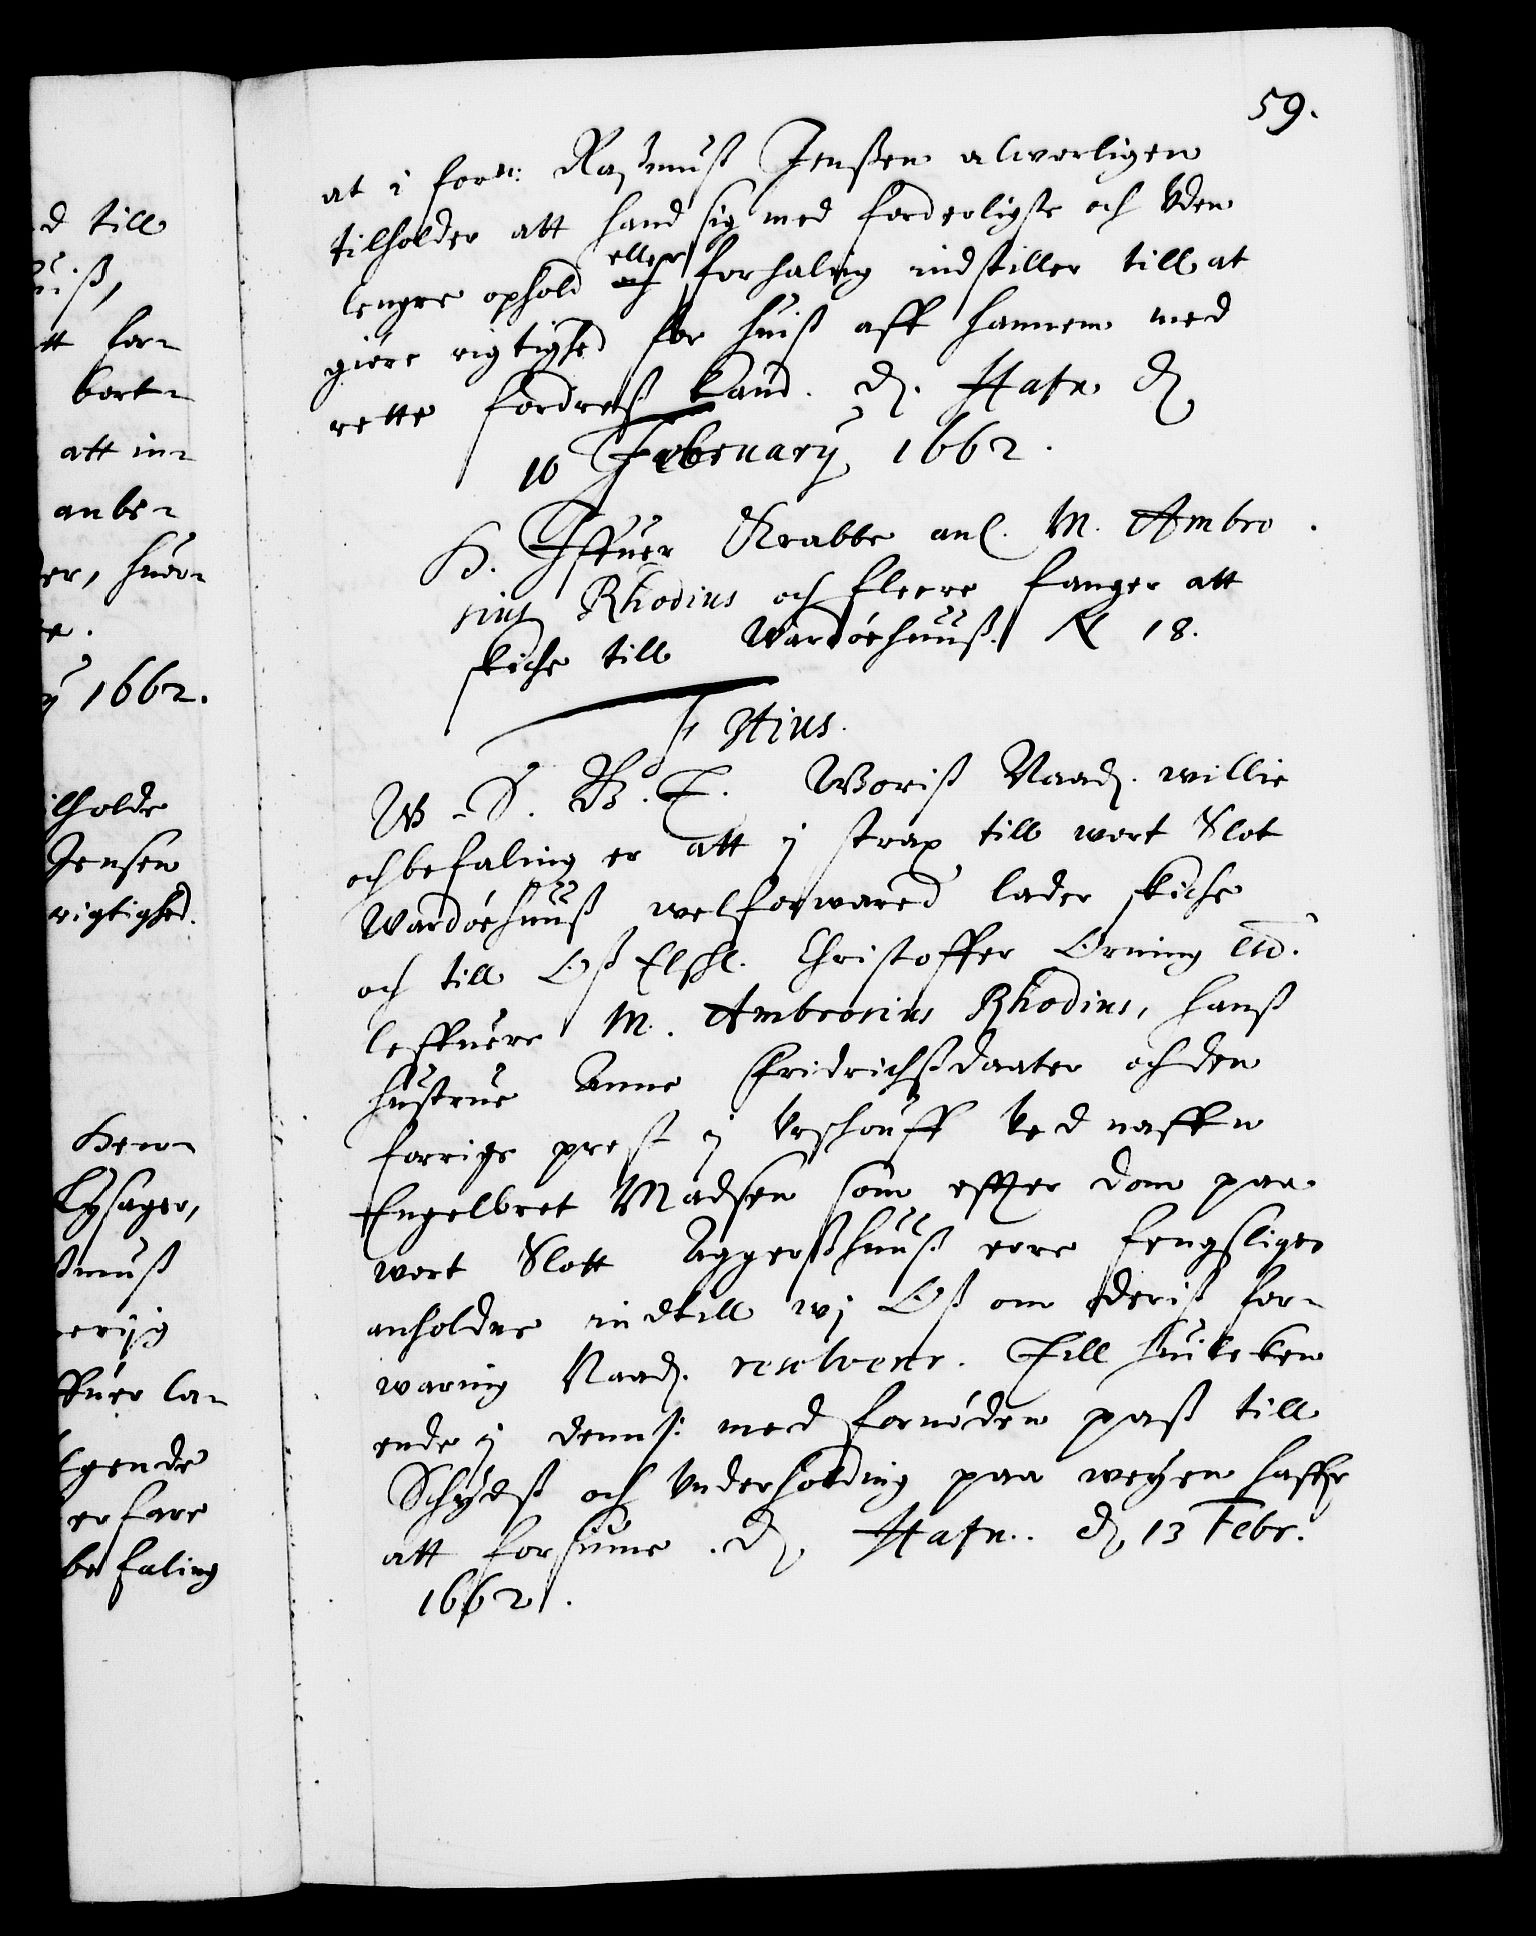 59.
at i forne: Rasmuß Jenßen alworligen
tilholder att hand sig med forderligste och Uden
lengre ophold eller forhaling indstiller till at
giøre rigtighed for huiß aff hannem med
rette fordreß kand. D. Hafn d
10 Februarÿ 1662.
H. Iffuer Krabbe anl. M. Ambro
sius Rhodius och fleere fanger att
skiche till Wardøehuuß. N 18.
F Itius.
W. S. G. T. Woriß Naad. willie
och befaling er att i strax till wort Slot
Wardøehuuß welforwared lader skiche
och till Oß Elskl. Christoffer Orning
leffuere M. Ambrosius Rhodius, hanß
hustrue Anne Fridrichßdaater och den
forrige prest i Urschouff Ved naffn
Engelbret Madsen som effter dom paa
wort Slott Aggerßhuuß ere fengsligen
anholdne indtill wj Oß om deriß for-
waring Naad. resolvere. Till huilcken
ende i dennß: med fornøden paß till
Schÿdß och Underholding paa weÿen haffr
att forsiune. D. Hafn. d. 13 Febr.
1662.
d till
uiß,
tt for-
bort-
att in-
anbe-
er, huor-
e.
ÿ 1662.
ilholde
Jensen
rigtighed.
Hen-
Lysager,
ßmuß
erÿg
ffuer la-
lgende
erfare
befaling